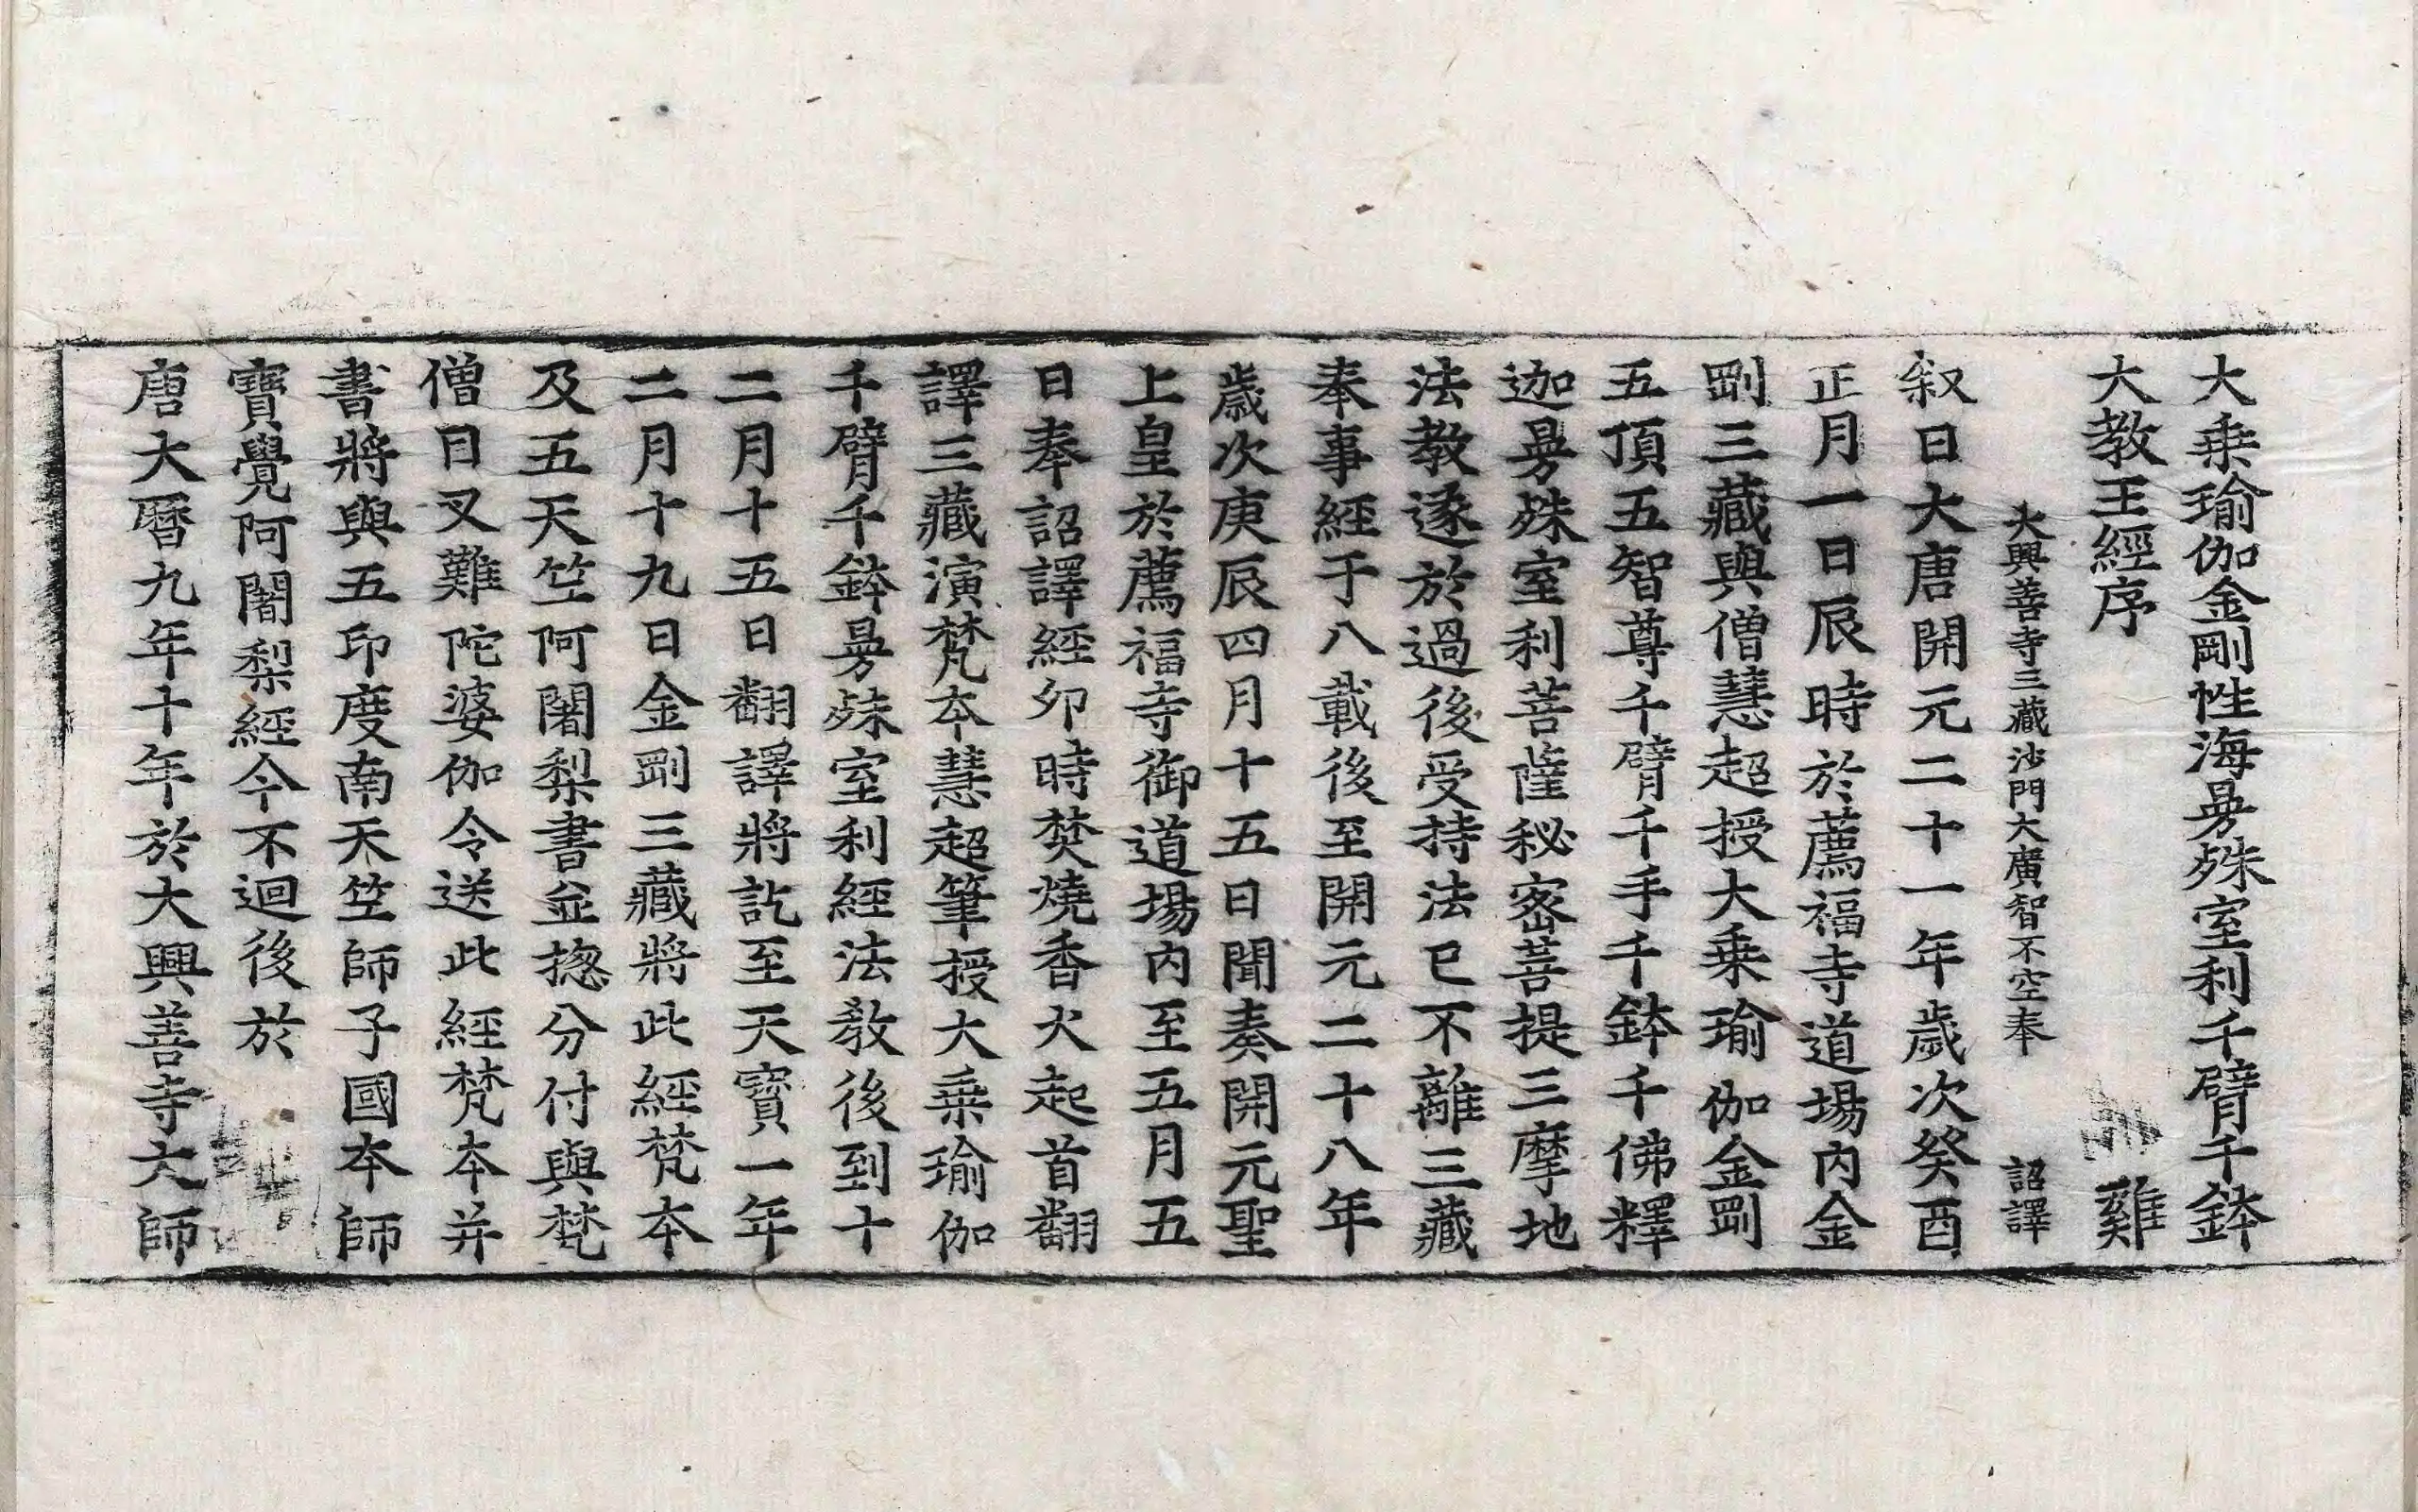 大乗瑜伽金剛性海曼殊室利千臂千鉢
大教王經序 雞
大興善寺三藏沙門大廣智不空奉 詔譯
叙曰大唐開元二十一年歲次癸酉
正月一日辰時於薦福寺道場内金
剛三藏與僧慧超授大乗瑜伽金剛
五頂五智尊千臂千手千鉢千佛釋
迦曼殊室利菩薩秘密菩提三摩地
法教遂於過後受持法已不離三藏
奉事經于八載後至開元二十八年
歲次庚辰四月十五日聞奏開元聖
上皇於薦福寺御道場内至五月五
日奉詔譯經夘時焚燒香火起首翻
譯三藏演梵本慧超筆授大乗瑜伽
千臂千鉢曼殊室利經法教後到十
二月十五日翻譯將訖至天寶一年
二月十九日金剛三藏將此經梵本
及五天竺阿闍梨書並揔分付與梵
僧目叉難陀婆伽令送此經梵本并
書將與五印度南天竺師子國本師
寶覺阿闍梨經今不迴後於
唐大曆九年十年於大興善寺大師